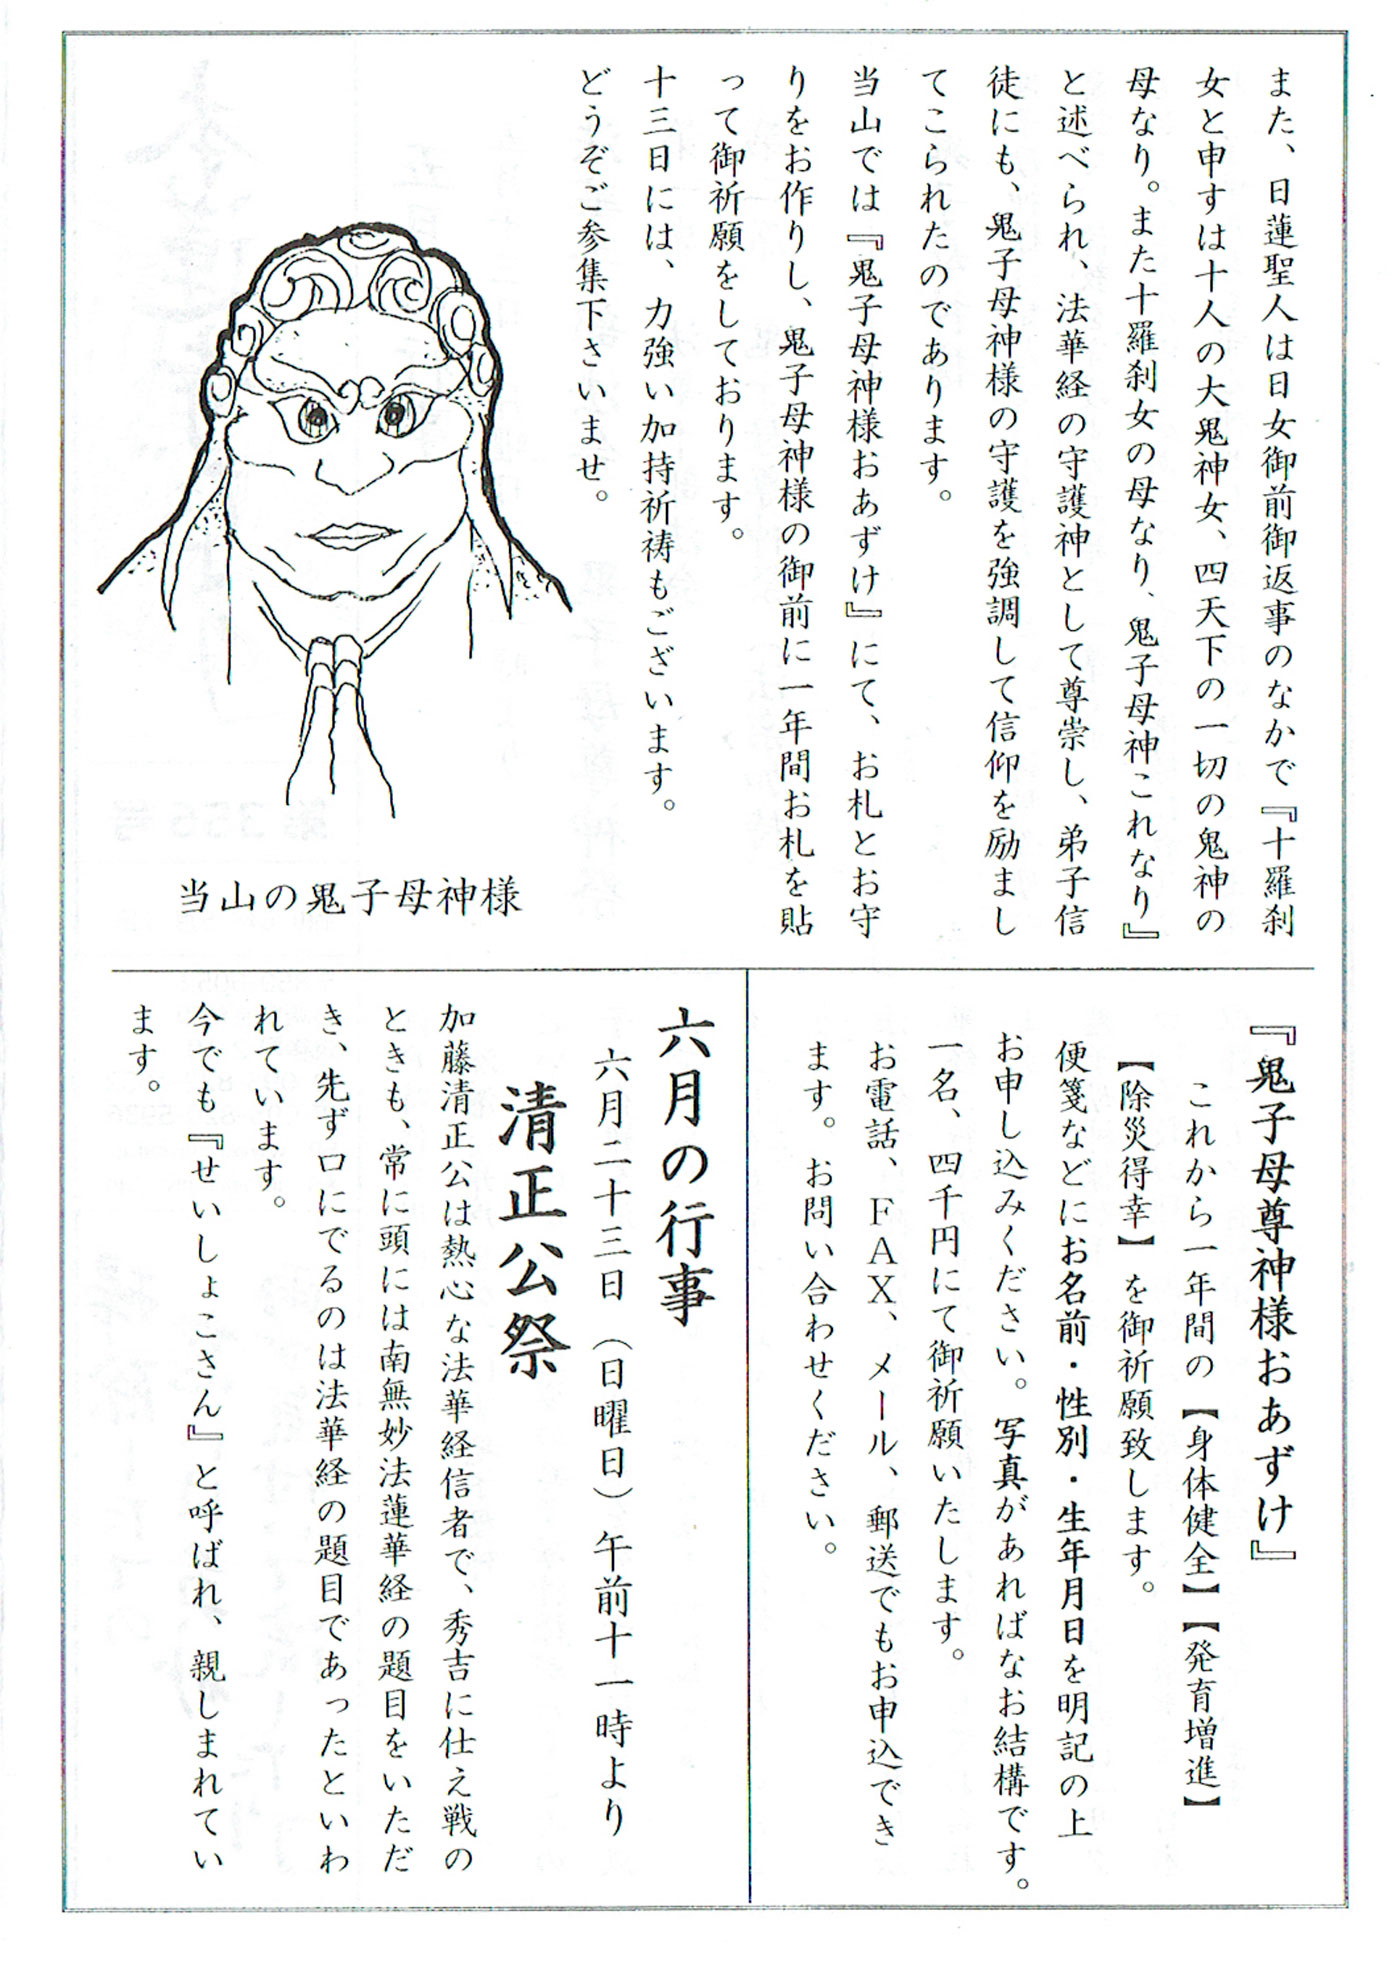 また、日蓮聖人は日女御前御返事のなかで『十羅刹
女と申すは十人の大鬼神女、四天下の一切の鬼神の
母なり。また十羅刹女の母なり、鬼子母神これなり』
と述べられ、法華経の守護神として尊崇し、弟子信
徒にも、鬼子母神様の守護を強調して信仰を励まし
てこられたのであります。
当山では『鬼子母神様おあずけ』にて、お札とお守
りをお作りし、鬼子母神様の御前に一年間お札を貼
って御祈願をしております。
十三日には、力強い加持祈祷もございます。
どうぞご参集下さいませ。
当山の鬼子母神様
『鬼子母尊神様おあずけ』
これから一年間の【身体健全】【発育増進】
【除災得幸】を御祈願致します。
便箋などにお名前・性別・生年月日を明記の上
お申し込みください。写真があればなお結構です。
一名、四千円にて御祈願いたします。
お電話、ＦＡＸ、メール、郵送でもお申込でき
ます。お問い合わせください。
六月の行事
六月二十三日（日曜日）午前十一時より
清正公祭
加藤清正公は熱心な法華経信者で、秀吉に仕え戦の
ときも、常に頭には南無妙法蓮華経の題目をいただ
き、先ず口にでるのは法華経の題目であったといわ
れています。
今でも『せいしょこさん』と呼ばれ、親しまれてい
ます。